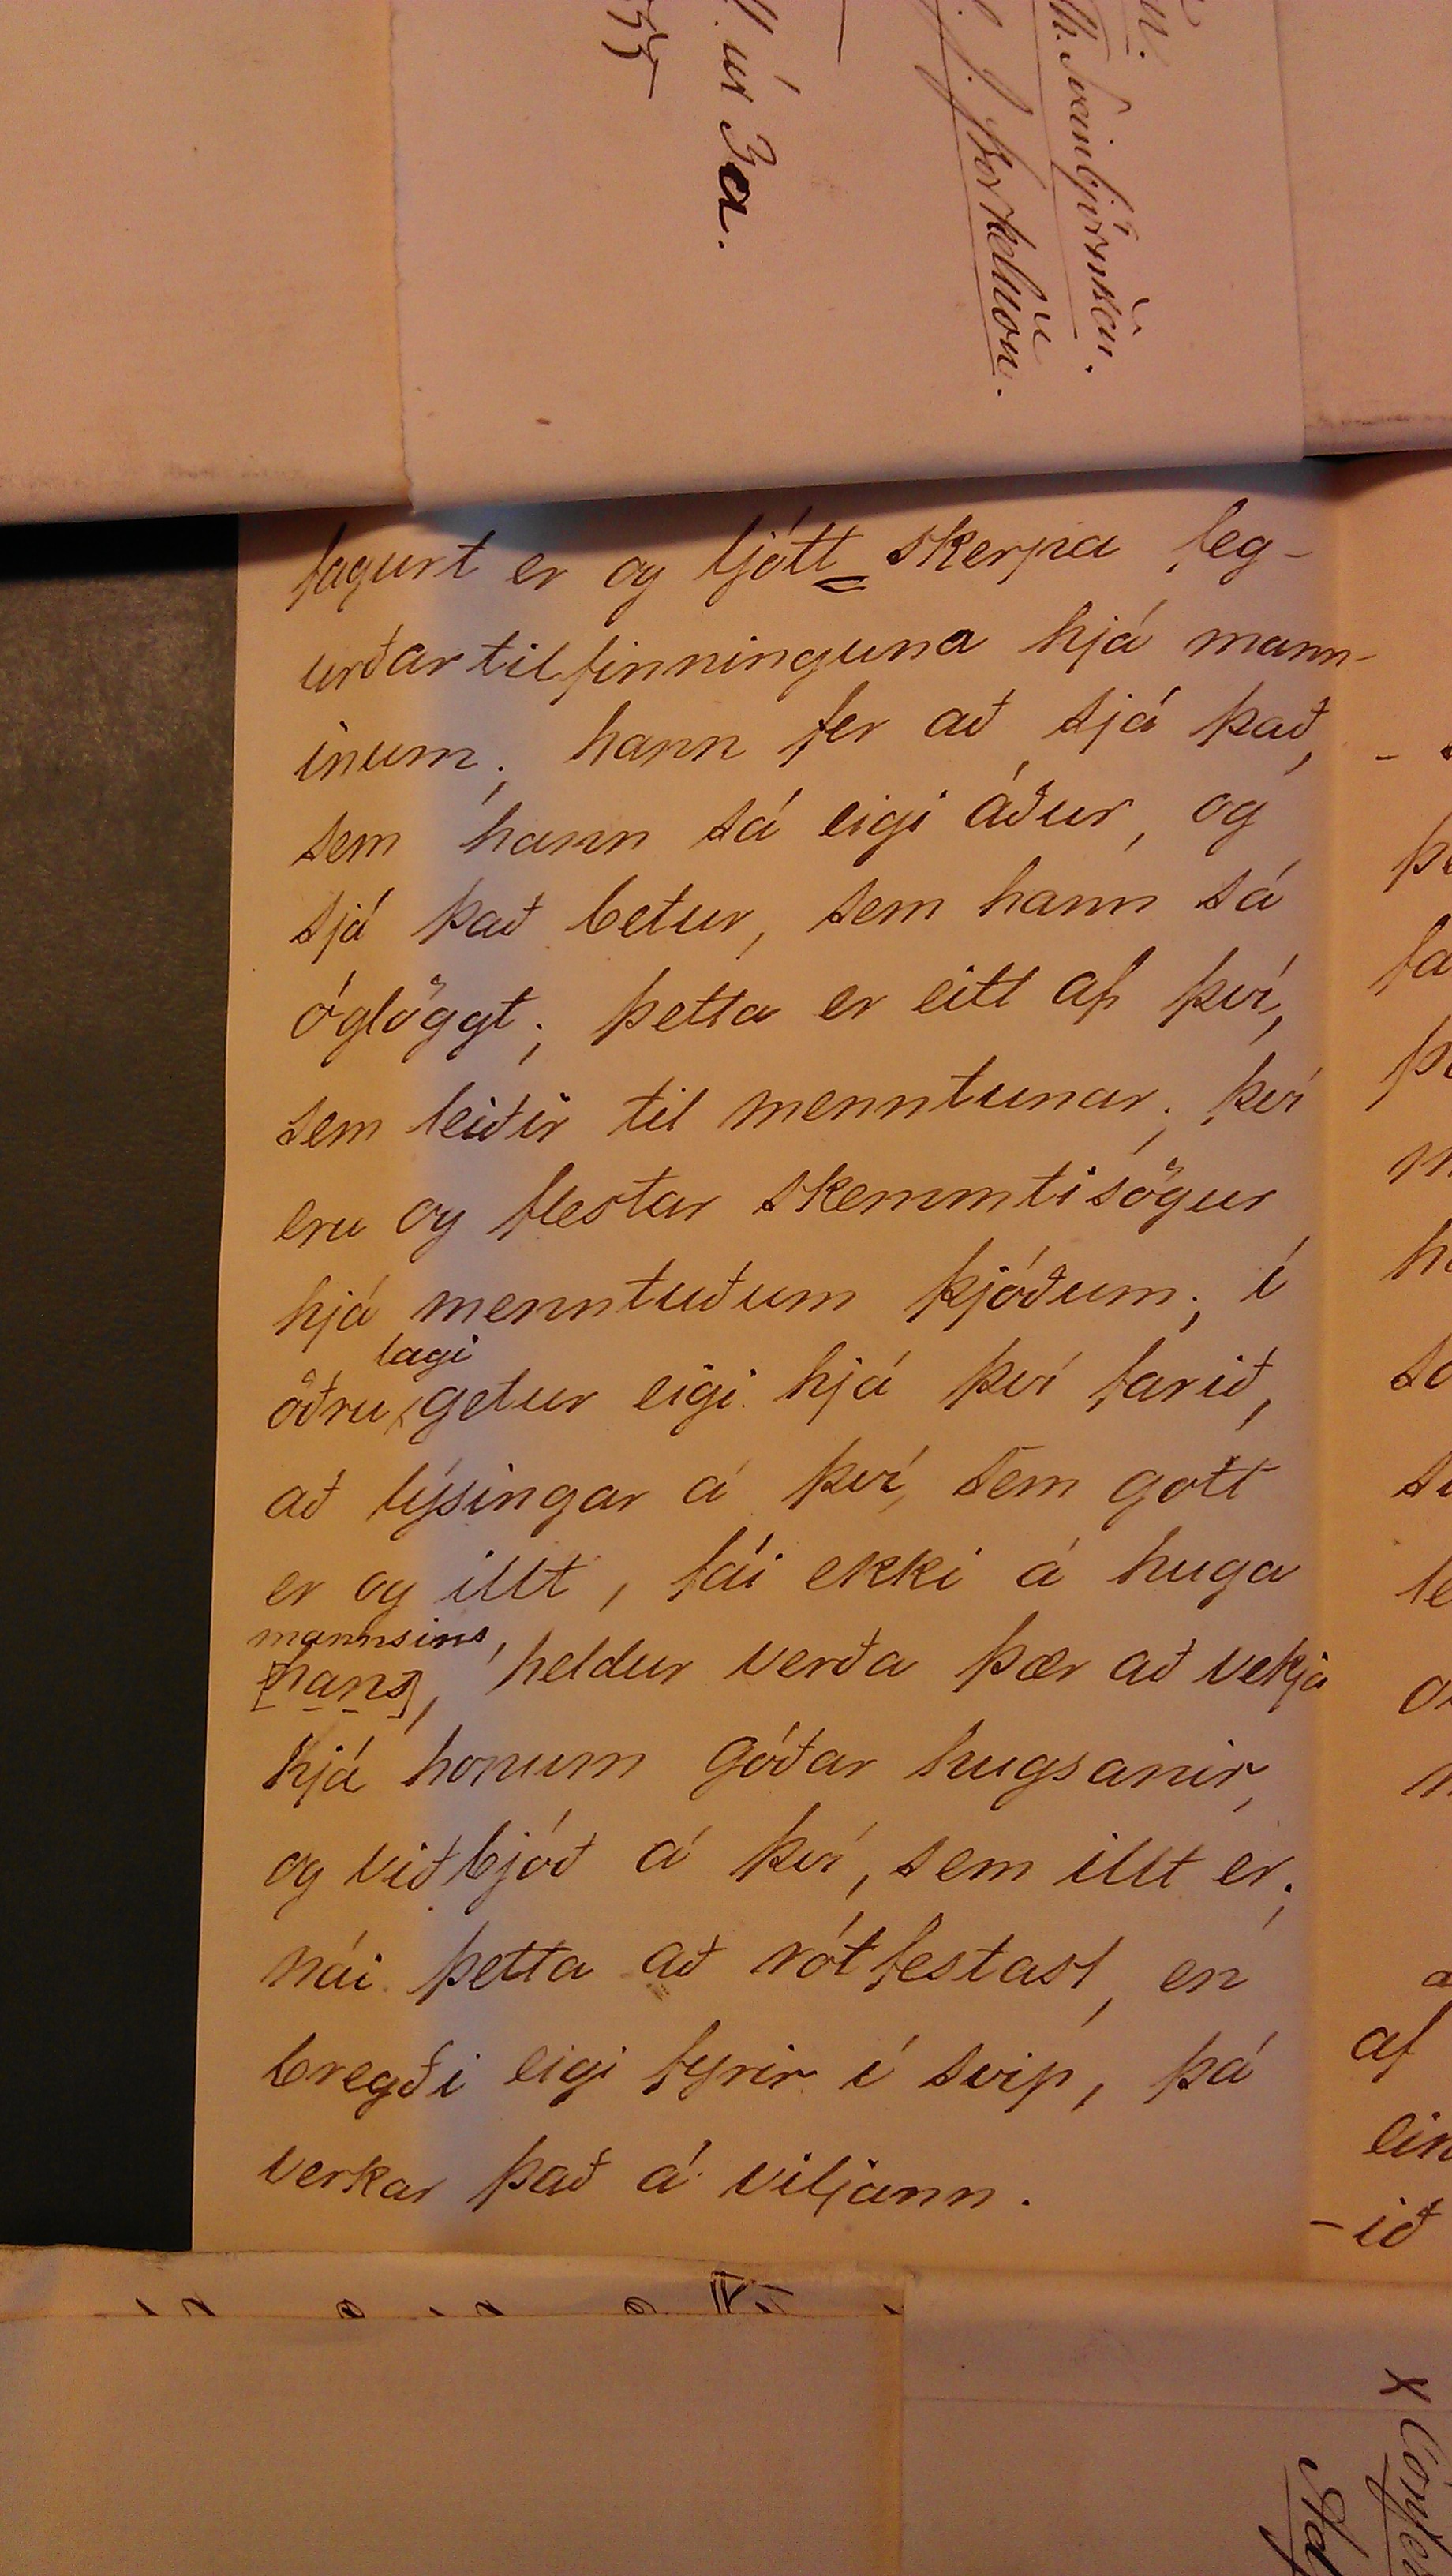 ll. úr 3a.
Th. Sveinbjörnsen.
J. Þorkelsson.
fagurt er og ljótt skerpa feg-
urðartilfinninguna hjá mann-
inum; hann fer að sjá það,
sem hann sá eigi áður, og
sjá það betur, sem hann sá
óglöggt; þetta er eitt af því,
sem leiðir til menntunar; því
eru og flestar skemmtisögur
hjá menntuðum þjóðum; í
lagi
öðru getur eigi hjá því farið,
að lýsingar á því, sem gott
er og illt, fái ekki á huga
mannsins,
[hans], heldur verða þær að vekja
hjá honum góðar hugsanir,
og viðbjóð á því, sem illt er;
nái þetta að rótfestast, en
bregði eigi fyrir í svip, þá
verkar það á viljann.
af
-ið